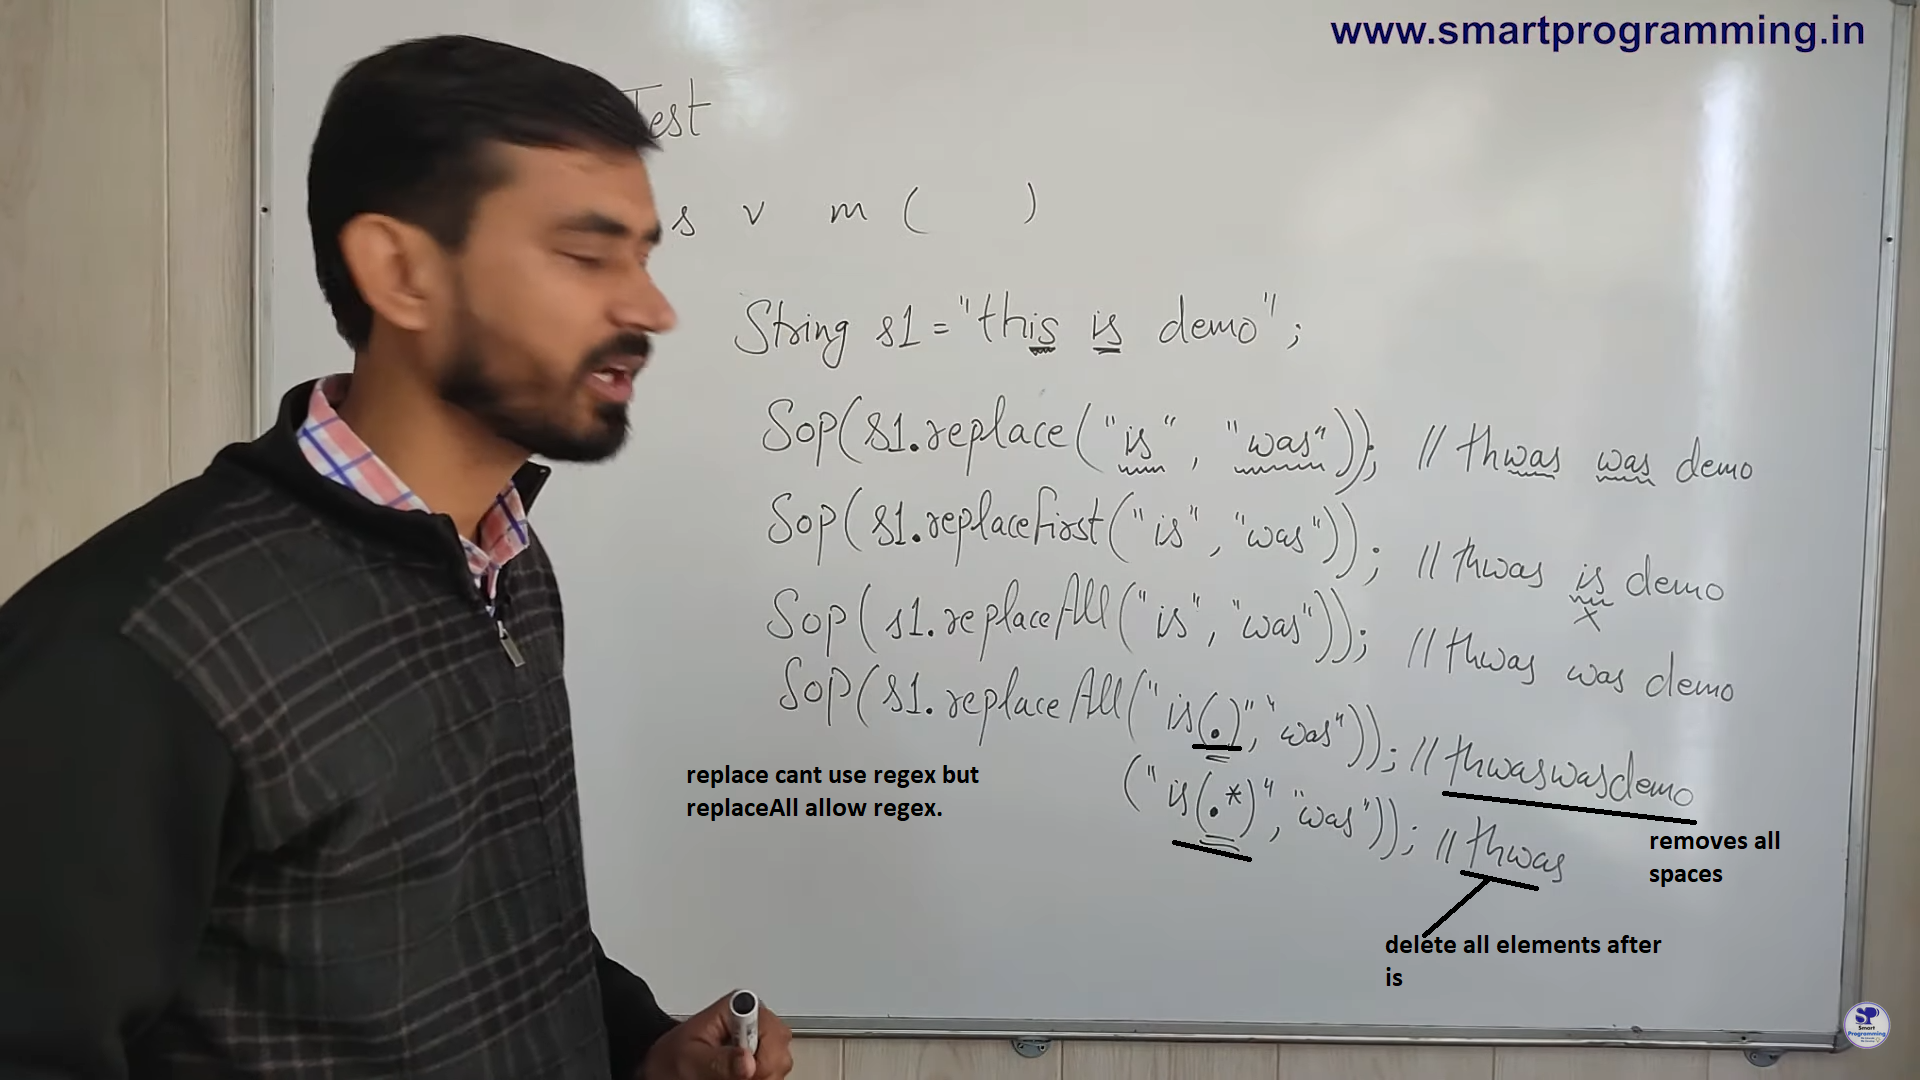 www.smartprogramming.in
Test
s v m ( )
String s1 = "this is demo";
Sop(s1.replace("is", "was")); // thwas was demo
Sop(s1.replaceFirst("is", "was")); // thwas is demo
x
Sop(s1.replaceAll("is", "was")); // thwas was demo
Sop(s1.replaceAll("is(.)", "was")); // thwaswasdemo
("is(.*)", "was")); // thwas
replace cant use regex but
replaceAll allow regex.
removes all
spaces
delete all elements after
is
SP
Smart
Programming